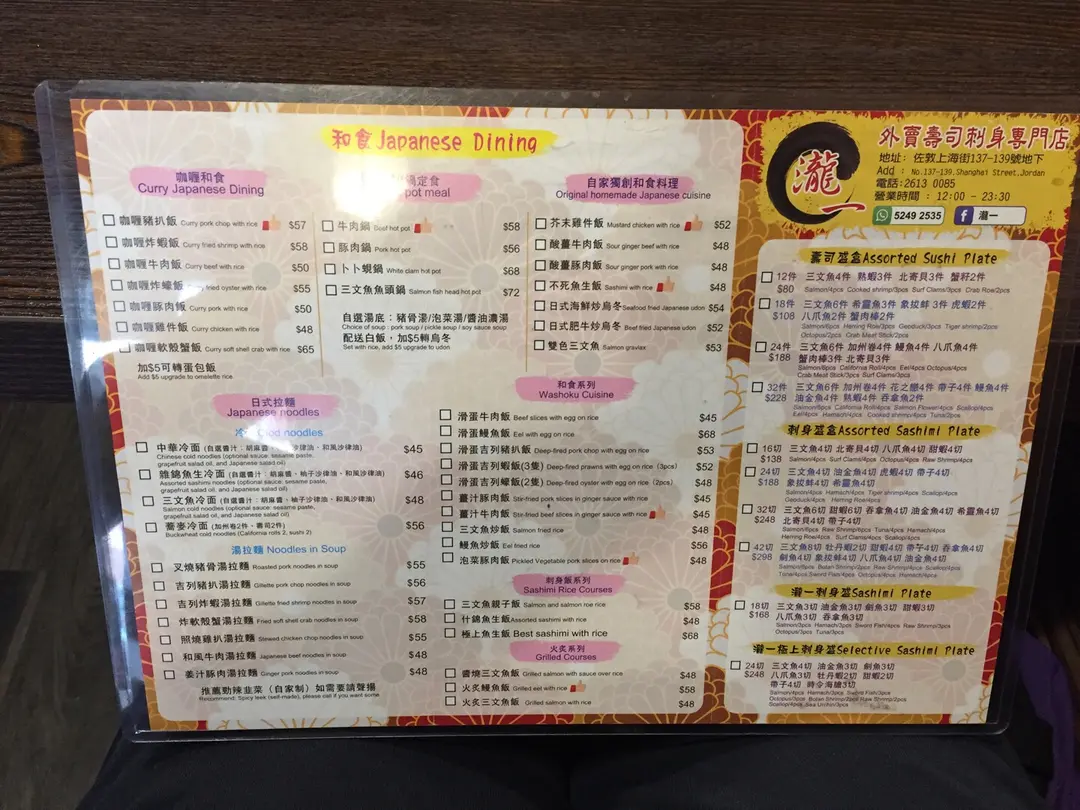 和食Japanese Dining
咖喱和食
Curry Japanese Dining
咖喱豬扒飯 Curry pork chop with rice $57
咖喱炸蝦飯 Curry fried shrimp with rice $58
咖喱牛肉飯 Curry beef with rice $50
咖喱炸蠔飯 Curry fried oyster with rice $55
咖喱豚肉飯 Curry pork with rice $50
咖喱雞件飯 Curry chicken with rice $48
咖喱軟殼蟹飯 Curry soft shell crab with rice $65
加$5可轉蛋包飯
Add $5 upgrade to omelette rice
鍋定食
pot meal
牛肉鍋 Beef hot pot $58
豚肉鍋 Pork hot pot $56
卜卜蜆鍋 White clam hot pot $68
三文魚魚頭鍋 Salmon fish head hot pot $72
自選湯底：豬骨湯/泡菜湯/醬油濃湯
Choice of soup : pork soup / pickle soup / soy sauce soup
配送白飯，加$5轉烏冬
Set with rice, add $5 upgrade to udon
自家獨創和食料理
Original homemade Japanese cuisine
芥末雞件飯 Mustard chicken with rice $52
酸薑牛肉飯 Sour ginger beef with rice $48
酸薑豚肉飯 Sour ginger pork with rice $48
不死魚生飯 Sashimi with rice $48
日式海鮮炒烏冬 Seafood fried Japanese udon $54
日式肥牛炒烏冬 Beef fried Japanese udon $52
雙色三文魚 Salmon gravlax $53
日式拉麵
Japanese noodles
Cold noodles
中華冷面 (自選醬汁：胡麻醬、柚子沙律油、和風沙律油) $45
Chinese cold noodles (optional sauce: sesame paste,
grapefruit salad oil, and Japanese salad oil)
雜錦魚生冷面 (自選醬汁：胡麻醬、柚子沙律油、和風沙律油) $46
Assorted sashimi noodles (optional sauce: sesame paste,
grapefruit salad oil, and Japanese salad oil)
三文魚冷面 (自選醬汁：胡麻醬、柚子沙律油、和風沙律油) $48
Salmon cold noodles (optional sauce: sesame paste,
grapefruit salad oil, and Japanese salad oil)
蕎麥冷面 (加州卷2件、壽司2件) $56
Buckwheat cold noodles (California rolls 2, sushi 2)
湯拉麵 Noodles in Soup
叉燒豬骨湯拉麵 Roasted pork noodles in soup $55
吉列豬扒湯拉麵 Gillette pork chop noodles in soup $56
吉列炸蝦湯拉麵 Gillette fried shrimp noodles in soup $57
炸軟殼蟹湯拉麵 Fried soft shell crab noodles in soup $58
照燒雞扒湯拉麵 Stewed chicken chop noodles in soup $55
和風牛肉湯拉麵 Japanese beef noodles in soup $48
姜汁豚肉湯拉麵 Ginger pork noodles in soup $48
推薦勁辣韭菜（自家制）如需要請聲揚
Recommend: Spicy leek (self-made), please call if you want some
和食系列
Washoku Cuisine
滑蛋牛肉飯 Beef slices with egg on rice $45
滑蛋鰻魚飯 Eel with egg on rice $68
滑蛋吉列豬扒飯 Deep-fired pork chop with egg on rice $53
滑蛋吉列蝦飯(3隻) Deep-fired prawns with egg on rice (3pcs) $52
滑蛋吉列蠔飯(2隻) Deep-fired oyster with egg on rice (2pcs) $48
薑汁豚肉飯 Stir-fried pork slices in ginger sauce with rice $45
薑汁牛肉飯 Stir-fried beef slices in ginger sauce with rice $45
三文魚炒飯 Salmon fried rice $48
鰻魚炒飯 Eel fried rice $56
泡菜豚肉飯 Pickled Vegetable pork slices on rice $48
刺身飯系列
Sashimi Rice Courses
三文魚親子飯 Salmon and salmon roe rice $58
什錦魚生飯 Assorted sashimi with rice $48
極上魚生飯 Best sashimi with rice $68
火炙系列
Grilled Courses
醬燒三文魚飯 Grilled salmon with sauce over rice $48
火炙鰻魚飯 Grilled eel with rice $58
火炙三文魚飯 Grilled salmon with rice $48
瀧一
外賣壽司刺身專門店
地址：佐敦上海街137-139號地下
Add : No.137-139.Shanghai Street,Jordan
電話:2613 0085
營業時間 : 12:00 - 23:30
5249 2535 f 瀧一
壽司盛盒Assorted Sushi Plate
12件 三文魚4件 熟蝦3件 北寄貝3件 蟹籽2件
$80 Salmon/4pcs Cooked shrimp/3pcs Surf Clams/3pcs Crab Roe/2pcs
18件 三文魚6件 希靈魚3件 象拔蚌3件 虎蝦2件
$108 八爪魚2件 蟹肉棒2件
Salmon/6pcs Herring Roe/3pcs Geoduck/3pcs Tiger shrimp/2pcs
Octopus/2pcs Crab Meat Stick/2pcs
24件 三文魚6件 加州卷4件 鰻魚4件 八爪魚4件
$188 蟹肉棒3件 北寄貝3件
Salmon/6pcs California Rol/4pcs Eel/4pcs Octopus/4pcs
Crab Meat Stick/3pcs Surf Clams/3pcs
32件 三文魚6件 加州卷4件 花之戀4件 帶子4件 鰻魚4件
$228 油金魚4件 熟蝦4件 吞拿魚2件
刺身盛盒Assorted Sashimi Plate
16切 三文魚4切 北寄貝4切 八爪魚4切 甜蝦4切
$138 Salmon/4pcs Surf Clams/4pcs Octopus/4pcs Raw Shrimp/4pcs
24切 三文魚4切 油金魚4切 虎蝦4切 帶子4切
$188 象拔蚌4切 希靈魚4切
Salmon/4pcs Hamachi/4pcs Tiger shrimp/4pcs Scallop/4pcs
Geoduck/4pcs Herring Roe/4pcs
32切 三文魚6切 甜蝦6切 吞拿魚4切 油金魚4切 希靈魚4切
$248 北寄貝4切 帶子4切
42切 三文魚8切 牡丹蝦2切 甜蝦4切 帶子4切 吞拿魚4切
$298 劍魚4切 象拔蚌4切 八爪魚4切 油金魚4切
瀧一刺身盛Sashimi Plate
18切 三文魚3切 油金魚3切 劍魚3切 甜蝦3切
$168 八爪魚3切 吞拿魚3切
Salmon/3pcs Hamachi/3pcs Sword Fish/3pcs Raw Shrimp/3pcs
Octopus/3pcs Tuna/3pcs
瀧一極上刺身盛Selective Sashimi Plate
24切 三文魚4切 油金魚3切 劍魚3切
$248 八爪魚3切 牡丹蝦2切 甜蝦2切
帶子4切 時令海膽3切